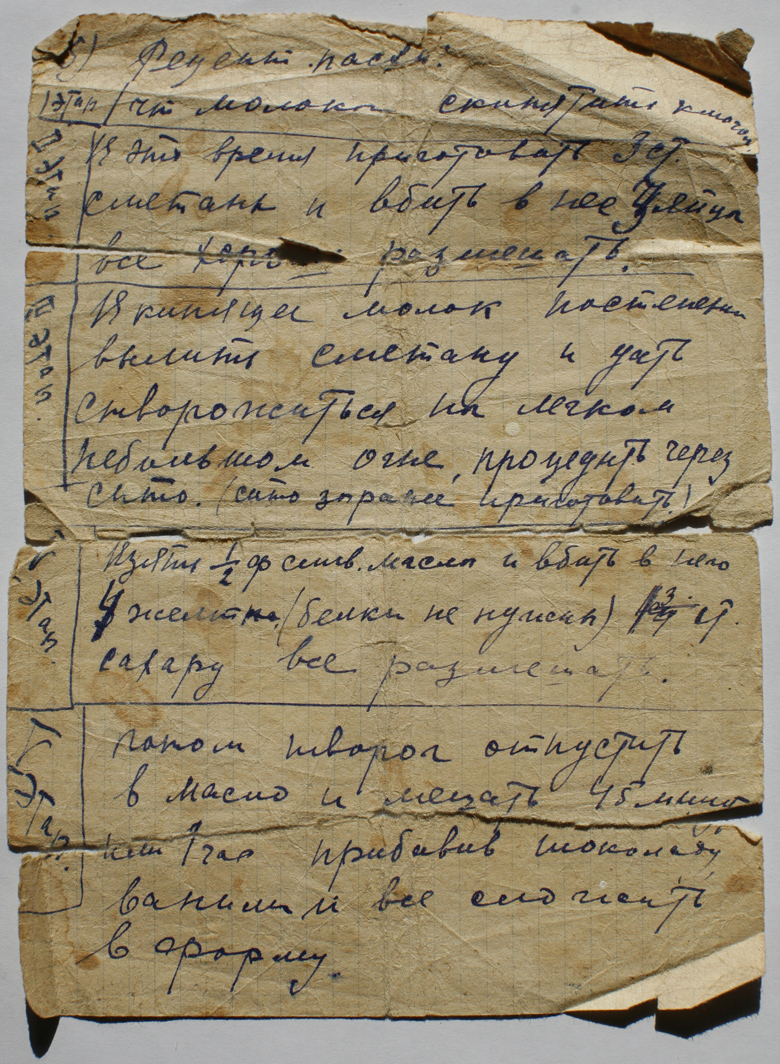 5) Рецепт пасхи:
I этап 1 чт молока скипятить ключом
II этап. В это время приготовить 3 ст.
сметаны и вбить в нее яйца
все размешать.
III этап. В кипящее молок постепенно
вылить сметану и дать
створожиться на легком
небольшом огне, процедить через
сито. (сито заранее приготовить!)
IV этап Взять 1/2 ф слив. масла и вбить в него
4 желтка (белки не нужны) ст.
сахару все размешать.
V этап. потом творог отпустить
в масло и мешать 45 минут
или 1 час прибавив шоколаду,
ванили и все сложить
в форму.